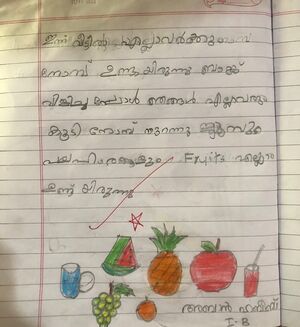 ഇന്ന് വീട്ടിൽ എല്ലാവർക്കും
നോമ്പ് ഉണ്ടായിരുന്നു ബാങ്ക്
വിളിച്ചപ്പോൾ ഞങ്ങൾ എല്ലാവരും
കൂടി നോമ്പ് തുറന്നു ജ്യൂസും
Fruits എല്ലാം
ഉണ്ടായിരുന്നു
I-B